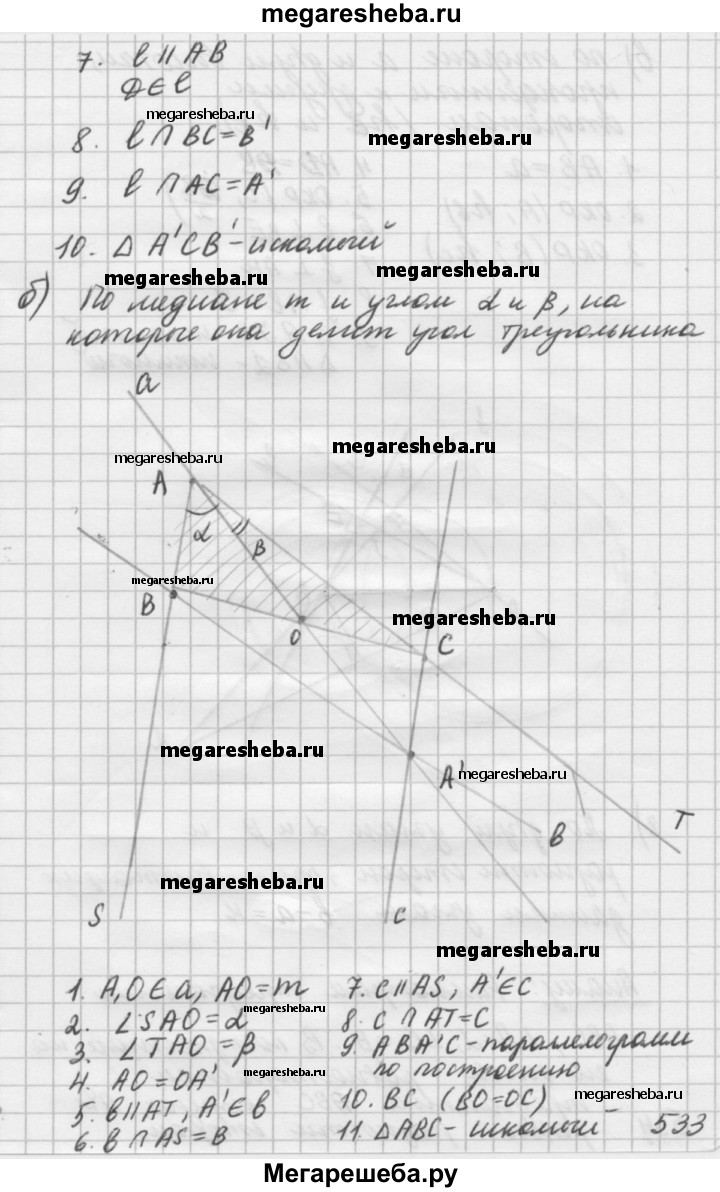 megaresheba.ru
7. l || AB
D ∈ l
megaresheba.ru
8. l ∩ BC = B'
megaresheba.ru
9. l ∩ AC = A'
10. Δ A'CB' - искомый
megaresheba.ru
megaresheba.ru
б) По медиане m и углам α и β, на
которые она делит угол треугольника
a
megaresheba.ru
megaresheba.ru
A
α
β
megaresheba.ru
B
megaresheba.ru
O
C
megaresheba.ru
A'
megaresheba.ru
T
B
megaresheba.ru
S
C
megaresheba.ru
1. A, O ∈ a, AO = m
2. ∠SAO = α
megaresheba.ru
3. ∠TAO = β
4. AO = OA'
megaresheba.ru
5. в || AT, A' ∈ в
6. в ∩ AS = B
7. c || AS, A' ∈ c
8. c ∩ AT = C
9. ABA'C - параллелограмм
по построению
10. BC (BO = OC)
megaresheba.ru
11. ΔABC - искомый
533
Мегарешеба.ру